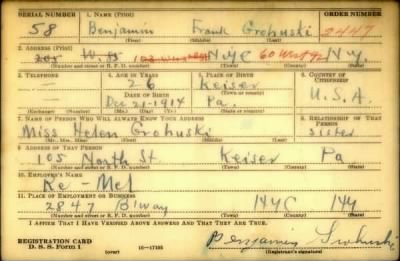 SERIAL NUMBER 1. NAME (Print) ORDER NUMBER
58 Benjamin Frank Grohuski 2447
(First) (Middle) (Last)
2. ADDRESS (Print)
N.Y.C 60 West 92 N.Y.
(Number and street or R. F. D. number) (Town) (County) (State)
3. TELEPHONE 4. AGE IN YEARS 5. PLACE OF BIRTH 6. COUNTRY OF CITIZENSHIP
26 Keiser
DATE OF BIRTH (Town or county)
Dec 21-1914 Pa. U.S.A.
(Exchange) (Number) (Mo.) (Day) (Yr.) (State or country)
7. NAME OF PERSON WHO WILL ALWAYS KNOW YOUR ADDRESS 8. RELATIONSHIP OF THAT PERSON
Miss Helen Grohuski sister
(Mr., Mrs., Miss) (First) (Middle) (Last)
9. ADDRESS OF THAT PERSON
105 North St. Keiser Pa
(Number and street or R. F. D. number) (Town) (County) (State)
10. EMPLOYER'S NAME
Re-Mel
11. PLACE OF EMPLOYMENT OR BUSINESS
2847 B'way NYC NY
(Number and street or R. F. D. number) (Town) (County) (State)
I AFFIRM THAT I HAVE VERIFIED ABOVE ANSWERS AND THAT THEY ARE TRUE.
REGISTRATION CARD
D. S. S. Form 1 (over) 16-17105
Benjamin Grohuski
(Registrant's signature)